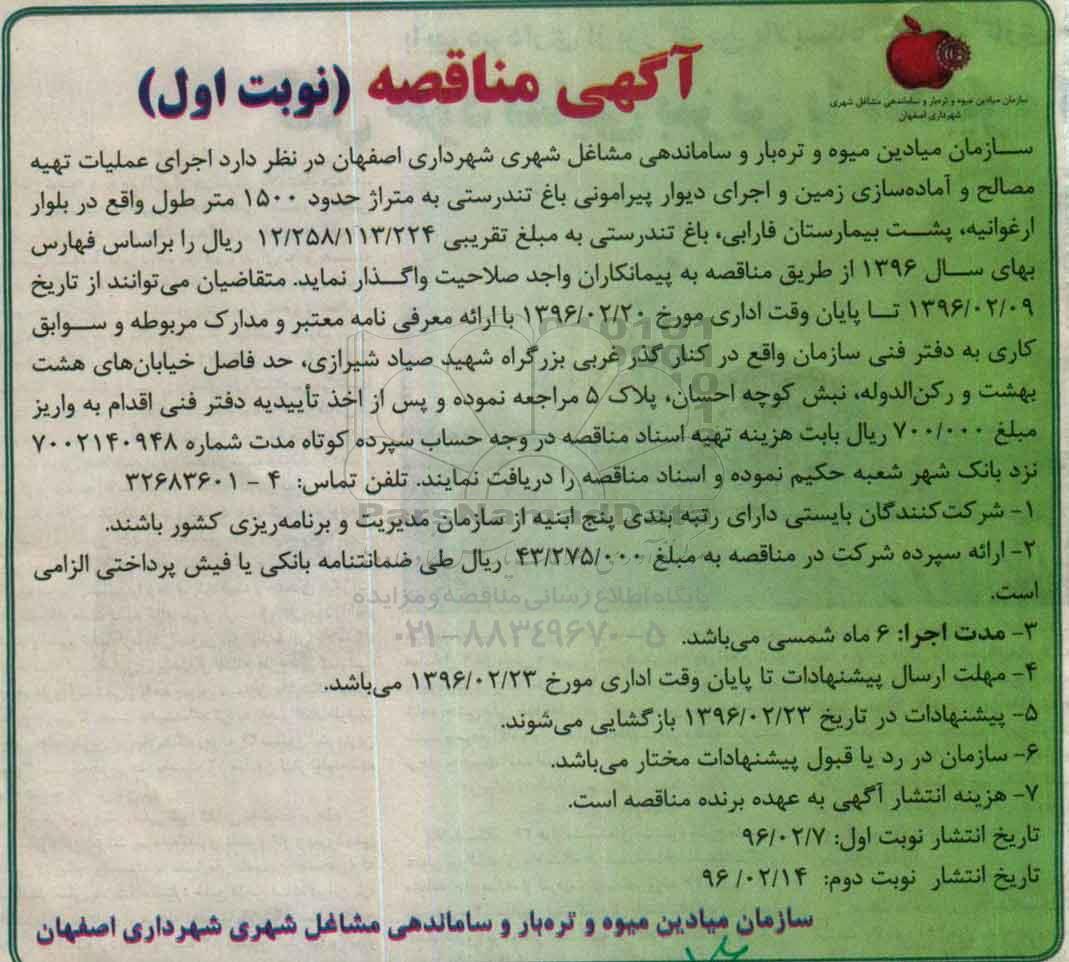 سازمان میادین میوه و تره‌بار و ساماندهی مشاغل شهری
شهرداری اصفهان
آگهی مناقصه (نوبت اول)
ســازمان میادین میوه و تره‌بار و ساماندهی مشاغل شهری شهرداری اصفهان در نظر دارد اجرای عملیات تهیه
مصالح و آماده‌سازی زمین و اجرای دیوار پیرامونی باغ تندرستی به متراژ حدود ۱۵۰۰ متر طول واقع در بلوار
ارغوانیه، پشــت بیمارستان فارابی، باغ تندرستی به مبلغ تقریبی ۱۲/۲۵۸/۱۱۳/۲۲۴ ریال را براساس فهارس
بهای ســال ۱۳۹۶ از طریق مناقصه به پیمانکاران واجد صلاحیت واگــذار نماید. متقاضیان می‌توانند از تاریخ
۱۳۹۶/۰۲/۰۹ تــا پایان وقت اداری مورخ ۱۳۹۶/۰۲/۲۰ با ارائه معرفی نامه معتبر و مدارک مربوطه و ســوابق
کاری به دفتر فنی سازمان واقع در کنار گذر غربی بزرگراه شهید صیاد شیرازی، حد فاصل خیابان‌های هشت
بهشت و رکن‌الدوله، نبش کوچه احسان، پلاک ۵ مراجعه نموده و پس از اخذ تأییدیه دفتر فنی اقدام به واریز
مبلغ ۷۰۰/۰۰۰ ریال بابت هزینه تهیه اسناد مناقصه در وجه حساب سپرده کوتاه مدت شماره ۷۰۰۲۱۴۰۹۴۸
نزد بانک شهر شعبه حکیم نموده و اسناد مناقصه را دریافت نمایند. تلفن تماس: ۴ - ۳۲۶۸۳۶۰۱
۱- شرکت‌کنندگان بایستی دارای رتبه بندی پنج ابنیه از سازمان مدیریت و برنامه‌ریزی کشور باشند.
۲- ارائه سپرده شرکت در مناقصه به مبلغ ۴۳/۲۷۵/۰۰۰ ریال طی ضمانتنامه بانکی یا فیش پرداختی الزامی
است.
۳- مدت اجرا: ۶ ماه شمسی می‌باشد.
۴- مهلت ارسال پیشنهادات تا پایان وقت اداری مورخ ۱۳۹۶/۰۲/۲۳ می‌باشد.
۵- پیشنهادات در تاریخ ۱۳۹۶/۰۲/۲۳ بازگشایی می‌شوند.
۶- سازمان در رد یا قبول پیشنهادات مختار می‌باشد.
۷- هزینه انتشار آگهی به عهده برنده مناقصه است.
تاریخ انتشار نوبت اول: ۹۶/۰۲/۷
تاریخ انتشار نوبت دوم: ۹۶/۰۲/۱۴
سازمان میادین میوه و تره‌بار و ساماندهی مشاغل شهری شهرداری اصفهان
ParsNamadData
پایگاه اطلاع رسانی مناقصه و مزایده
۰۲۱-۸۸۳۴۹۶۷۰-۵